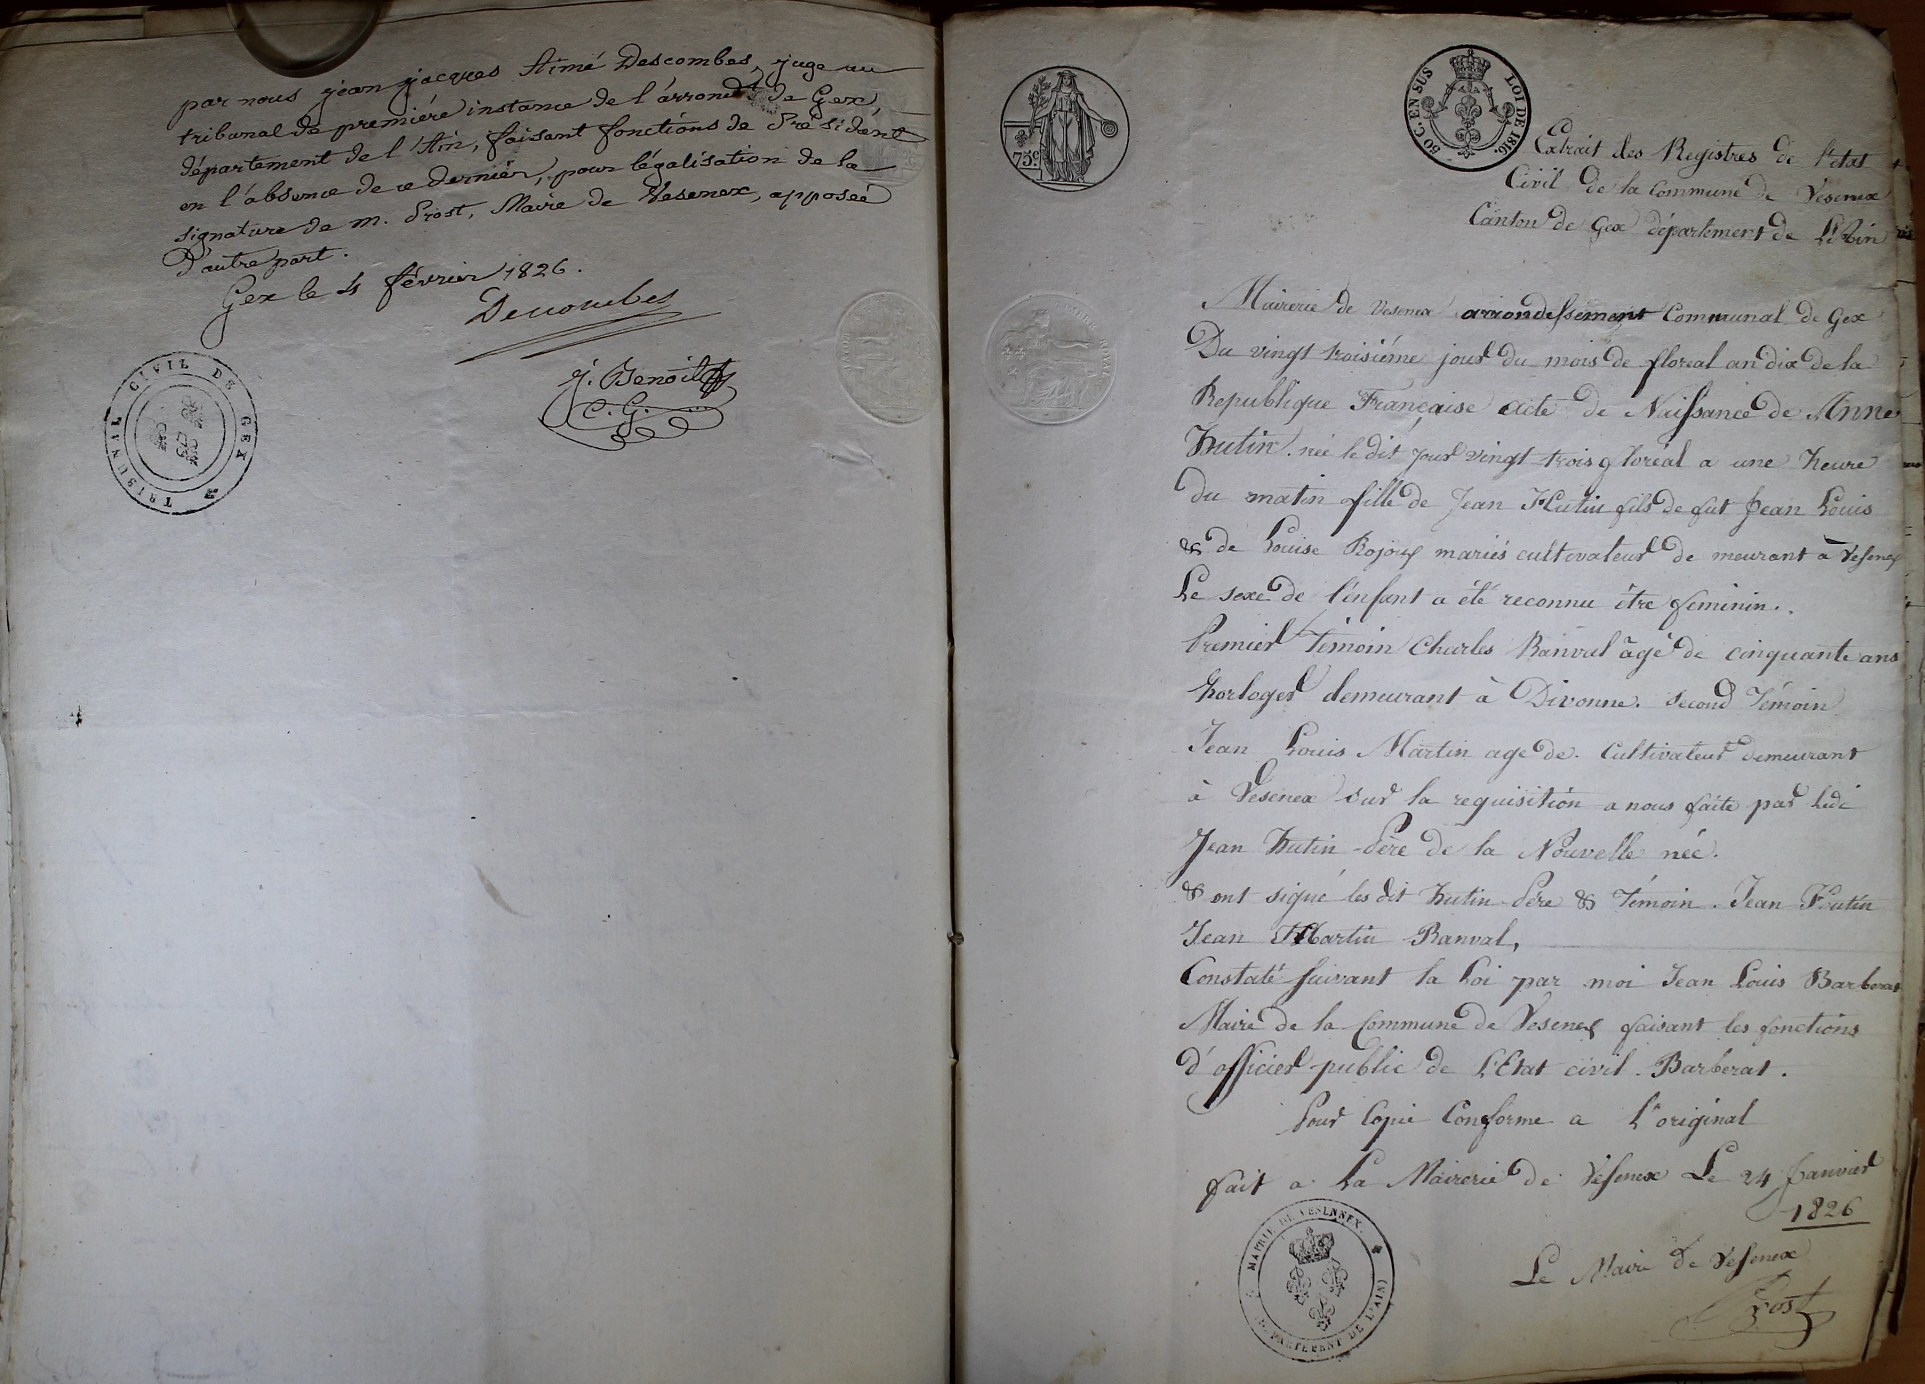 par nous jean jacques Aimé Descombes, juge au
tribunal de première instance de l'arrondt de Gex,
département de l'Ain, faisant fonctions de Président
en l'absence de ce dernier, pour légalisation de la
signature de m. Prost, Maire de Vesenex, apposée
d'autre part.
Gex le 4 février 1826.
Descombes
J. Benoit
C. G.
TRIBUNAL CIVIL DE GEX
75c
50 C. EN SUS LOI DE 1816.
Extrait des Registres de l'etat
Civil de la Commune de Vesenex
Canton de Gex département de L'Ain
Mairerie de Vesenex arrondessement Communal de Gex
Du vingt troisiéme jour du mois de floreal an dix de la
Republique Française acte de Naissance de Anne
Hutin. née le dit jour vingt trois floréal a une heure
du matin fille de Jean Hutin fils de fut Jean Louis
& de Louise Rojoux mariés cultivateur de meurant à Vesenex
Le sexe de l'enfant a été reconnu être feminin.
Premier Témoin Charles Ranval âgé de cinquante ans
horloger demeurant à Divonne. Second Témoin
Jean Louis Martin age de. Cultivateur demeurant
à Vesenex Sur la requisition a nous faite par ledi
Jean Hutin Pére de la Nouvelle née.
& ont signé les dit Hutin Pére & Témoin. Jean Hutin
Jean Martin Ranval,
Constaté suivant la Loi par moi Jean Louis Barberat
Maire de la Commune de Vesenex faisant les fonctions
d'officier public de L'Etat civil. Barberat.
Pour Copie Conforme a L'original
fait a La Mairerie de Vesenex Le 24 Janvier
1826
MAIRIE DE VESENNEX.
DÉPARTEMENT DE L'(AIN)
Le Maire de Vesenex
Prost